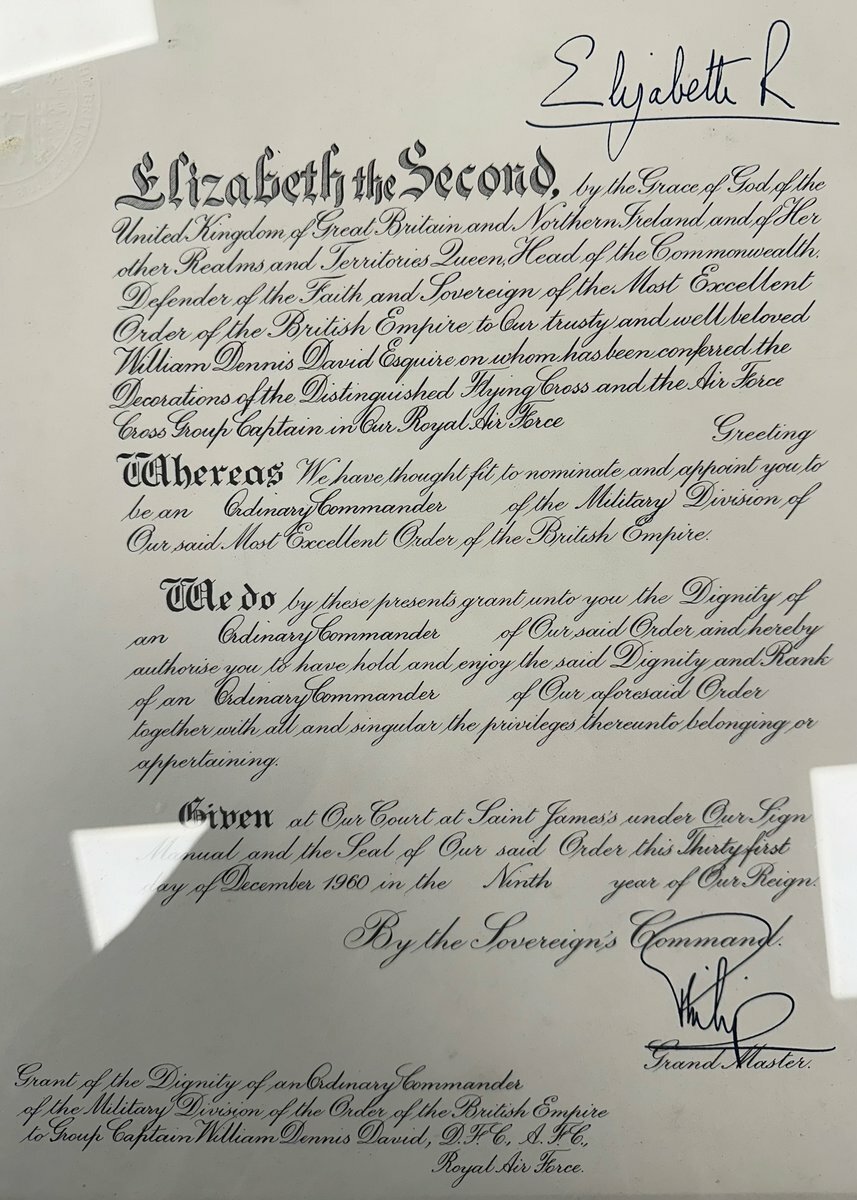 Elizabeth R
Elizabeth the Second, by the Grace of God of the
United Kingdom of Great Britain and Northern Ireland and of Her
other Realms and Territories Queen, Head of the Commonwealth,
Defender of the Faith and Sovereign of the Most Excellent
Order of the British Empire to Our trusty and well beloved
William Dennis David Esquire on whom has been conferred the
Decorations of the Distinguished Flying Cross and the Air Force
Cross Group Captain in Our Royal Air Force Greeting
Whereas We have thought fit to nominate and appoint you to
be an Ordinary Commander of the Military Division of
Our said Most Excellent Order of the British Empire.
We do by these presents grant unto you the Dignity of
an Ordinary Commander of Our said Order and hereby
authorise you to have hold and enjoy the said Dignity and Rank
of an Ordinary Commander of Our aforesaid Order
together with all and singular the privileges thereunto belonging or
appertaining.
Given at Our Court at Saint James's under Our Sign
Manual and the Seal of Our said Order this Thirty first
day of December 1960 in the Ninth year of Our Reign.
By the Sovereign's Command.
Philip
Grand Master.
Grant of the Dignity of an Ordinary Commander
of the Military Division of the Order of the British Empire
to Group Captain William Dennis David, D.F.C., A.F.C.,
Royal Air Force.